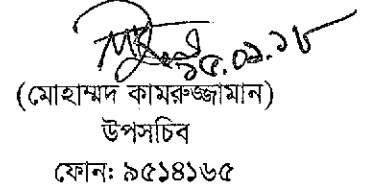 ১৫.০১.১৮
(মোহাম্মদ কামরুজ্জামান)
উপসচিব
ফোন: ৯৫১৪১৬৫